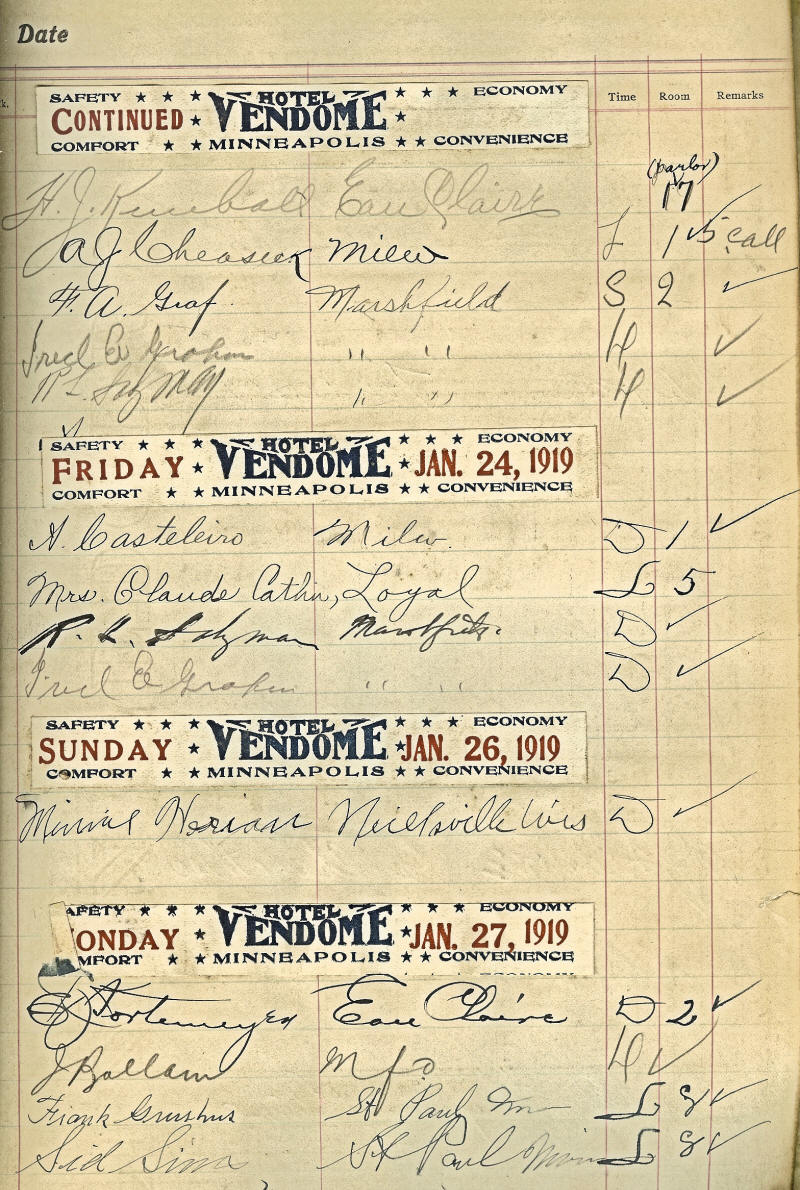 Date
k. Time Room Remarks
SAFETY ★ ★ ★ HOTEL ★ ★ ★ ECONOMY
CONTINUED ★ VENDOME ★
COMFORT ★ ★ MINNEAPOLIS ★ ★ CONVENIENCE
(parlor)
H. J. Kimball Eau Claire 17
A J Cheaseek Milw L 1 ✓ 5 call
F. A. Graf. Marshfield S 2 ✓
Fred E Graham " " ✓
" " ✓
SAFETY ★ ★ ★ HOTEL ★ ★ ★ ECONOMY
FRIDAY ★ VENDOME ★ JAN. 24, 1919
COMFORT ★ ★ MINNEAPOLIS ★ ★ CONVENIENCE
A. Casteleiro Milw. D 1 ✓
Mrs. Claude Catlin, Loyal L 5
R. L. Salzman Marshfield. D ✓
Fred E Graham " " D ✓
SAFETY ★ ★ ★ HOTEL ★ ★ ★ ECONOMY
SUNDAY ★ VENDOME ★ JAN. 26, 1919
COMFORT ★ ★ MINNEAPOLIS ★ ★ CONVENIENCE
Neillsville Wis D ✓
AFETY ★ ★ ★ HOTEL ★ ★ ★ ECONOMY
ONDAY ★ VENDOME ★ JAN. 27, 1919
MFORT ★ ★ MINNEAPOLIS ★ ★ CONVENIENCE
Kortemeyer Eau Claire D 2 ✓
J Ballam Mfd ✓
Frank Grushus St Paul L 8 ✓
Sid Sims St Paul Minn L 8 ✓